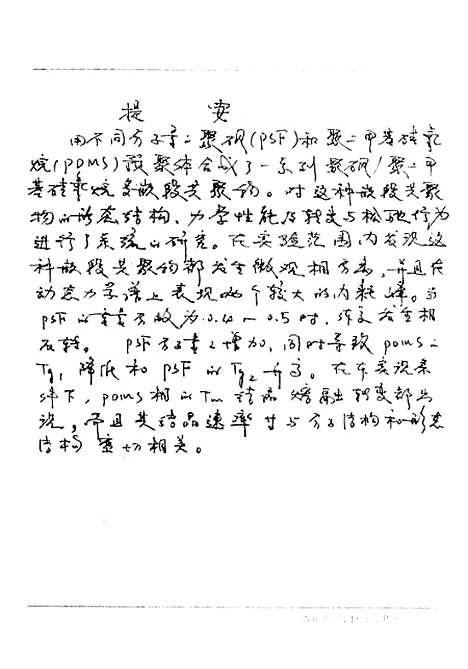 提 要
用不同分子量之聚砜(PSF)和聚二甲基硅氧
烷(PDMS)预聚体合成了一系列聚砜/聚二甲
基硅氧烷多嵌段共聚物。对这种嵌段共聚
物的形态结构、力学性能及转变与松弛行为
进行了系统的研究。在实验范围内发现这
种嵌段共聚物都发生微观相分离,并且在
动态力学谱上表现两个较大的内耗峰。当
PSF的重量分数为0.4—0.5时,体系发生相
反转。 PSF分子量之增加,同时导致PDMS之
Tg1降低和PSF的Tg2升高。在本实验条
件下,PDMS相的Tm结晶熔融转变都出
现,并且其结晶速率等与分子结构和形态
结构密切相关。